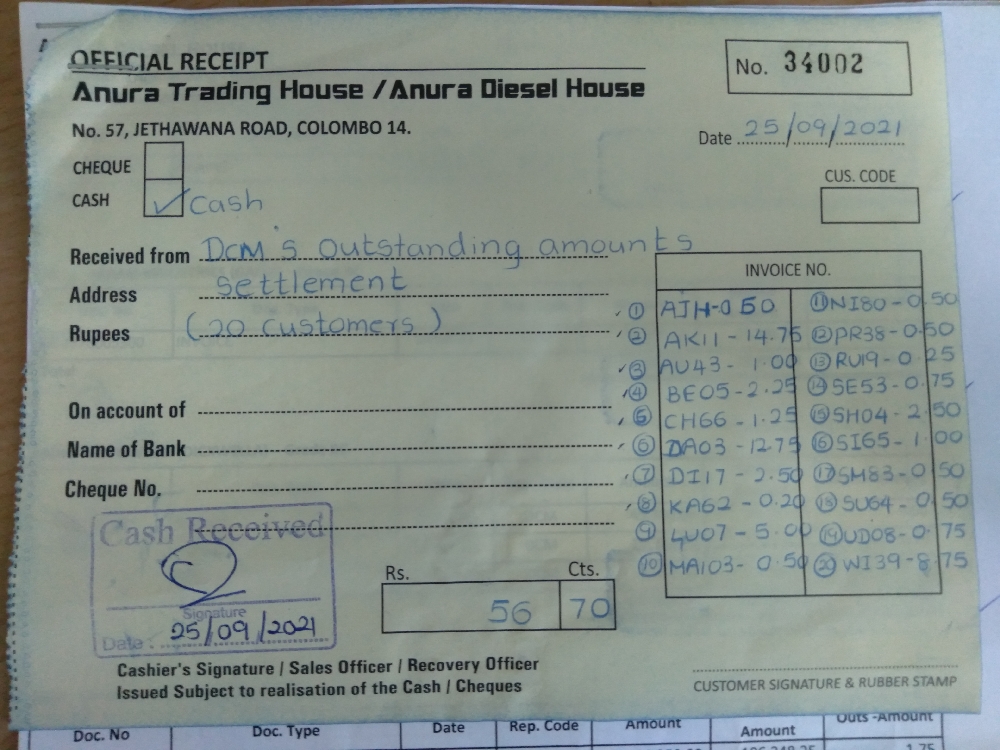 OFFICIAL RECEIPT
No. 34002
Anura Trading House / Anura Diesel House
No. 57, JETHAWANA ROAD, COLOMBO 14.
Date 25/09/2021
CHEQUE
CUS. CODE
CASH ✓ Cash
Received from DCM's outstanding amounts
Address settlement
Rupees (20 customers)
On account of
Name of Bank
Cheque No.
INVOICE NO.
① AJH-0 50 ⑪ NI80-0.50
② AK11-14.75 ⑫ PR38-0.50
③ AU43-1.00 ⑬ RU19-0.25
④ BE05-2.25 ⑭ SE53-0.75
⑤ CH66-1.25 ⑮ SH04-2.50
⑥ DA03-12.75 ⑯ SI65-1.00
⑦ DI17-2.50 ⑰ SM83-0.50
⑧ KA62-0.20 ⑱ SU64-0.50
⑨ LU07-5.00 ⑲ UD08-0.75
⑩ MA103-0.50 ⑳ WI39-8.75
Cash Received
Signature
Date: 25/09/2021
Rs. Cts.
56 70
Cashier's Signature / Sales Officer / Recovery Officer
Issued Subject to realisation of the Cash / Cheques
CUSTOMER SIGNATURE & RUBBER STAMP
Doc. No Doc. Type Date Rep. Code Amount Amount Outs -Amount
1.75